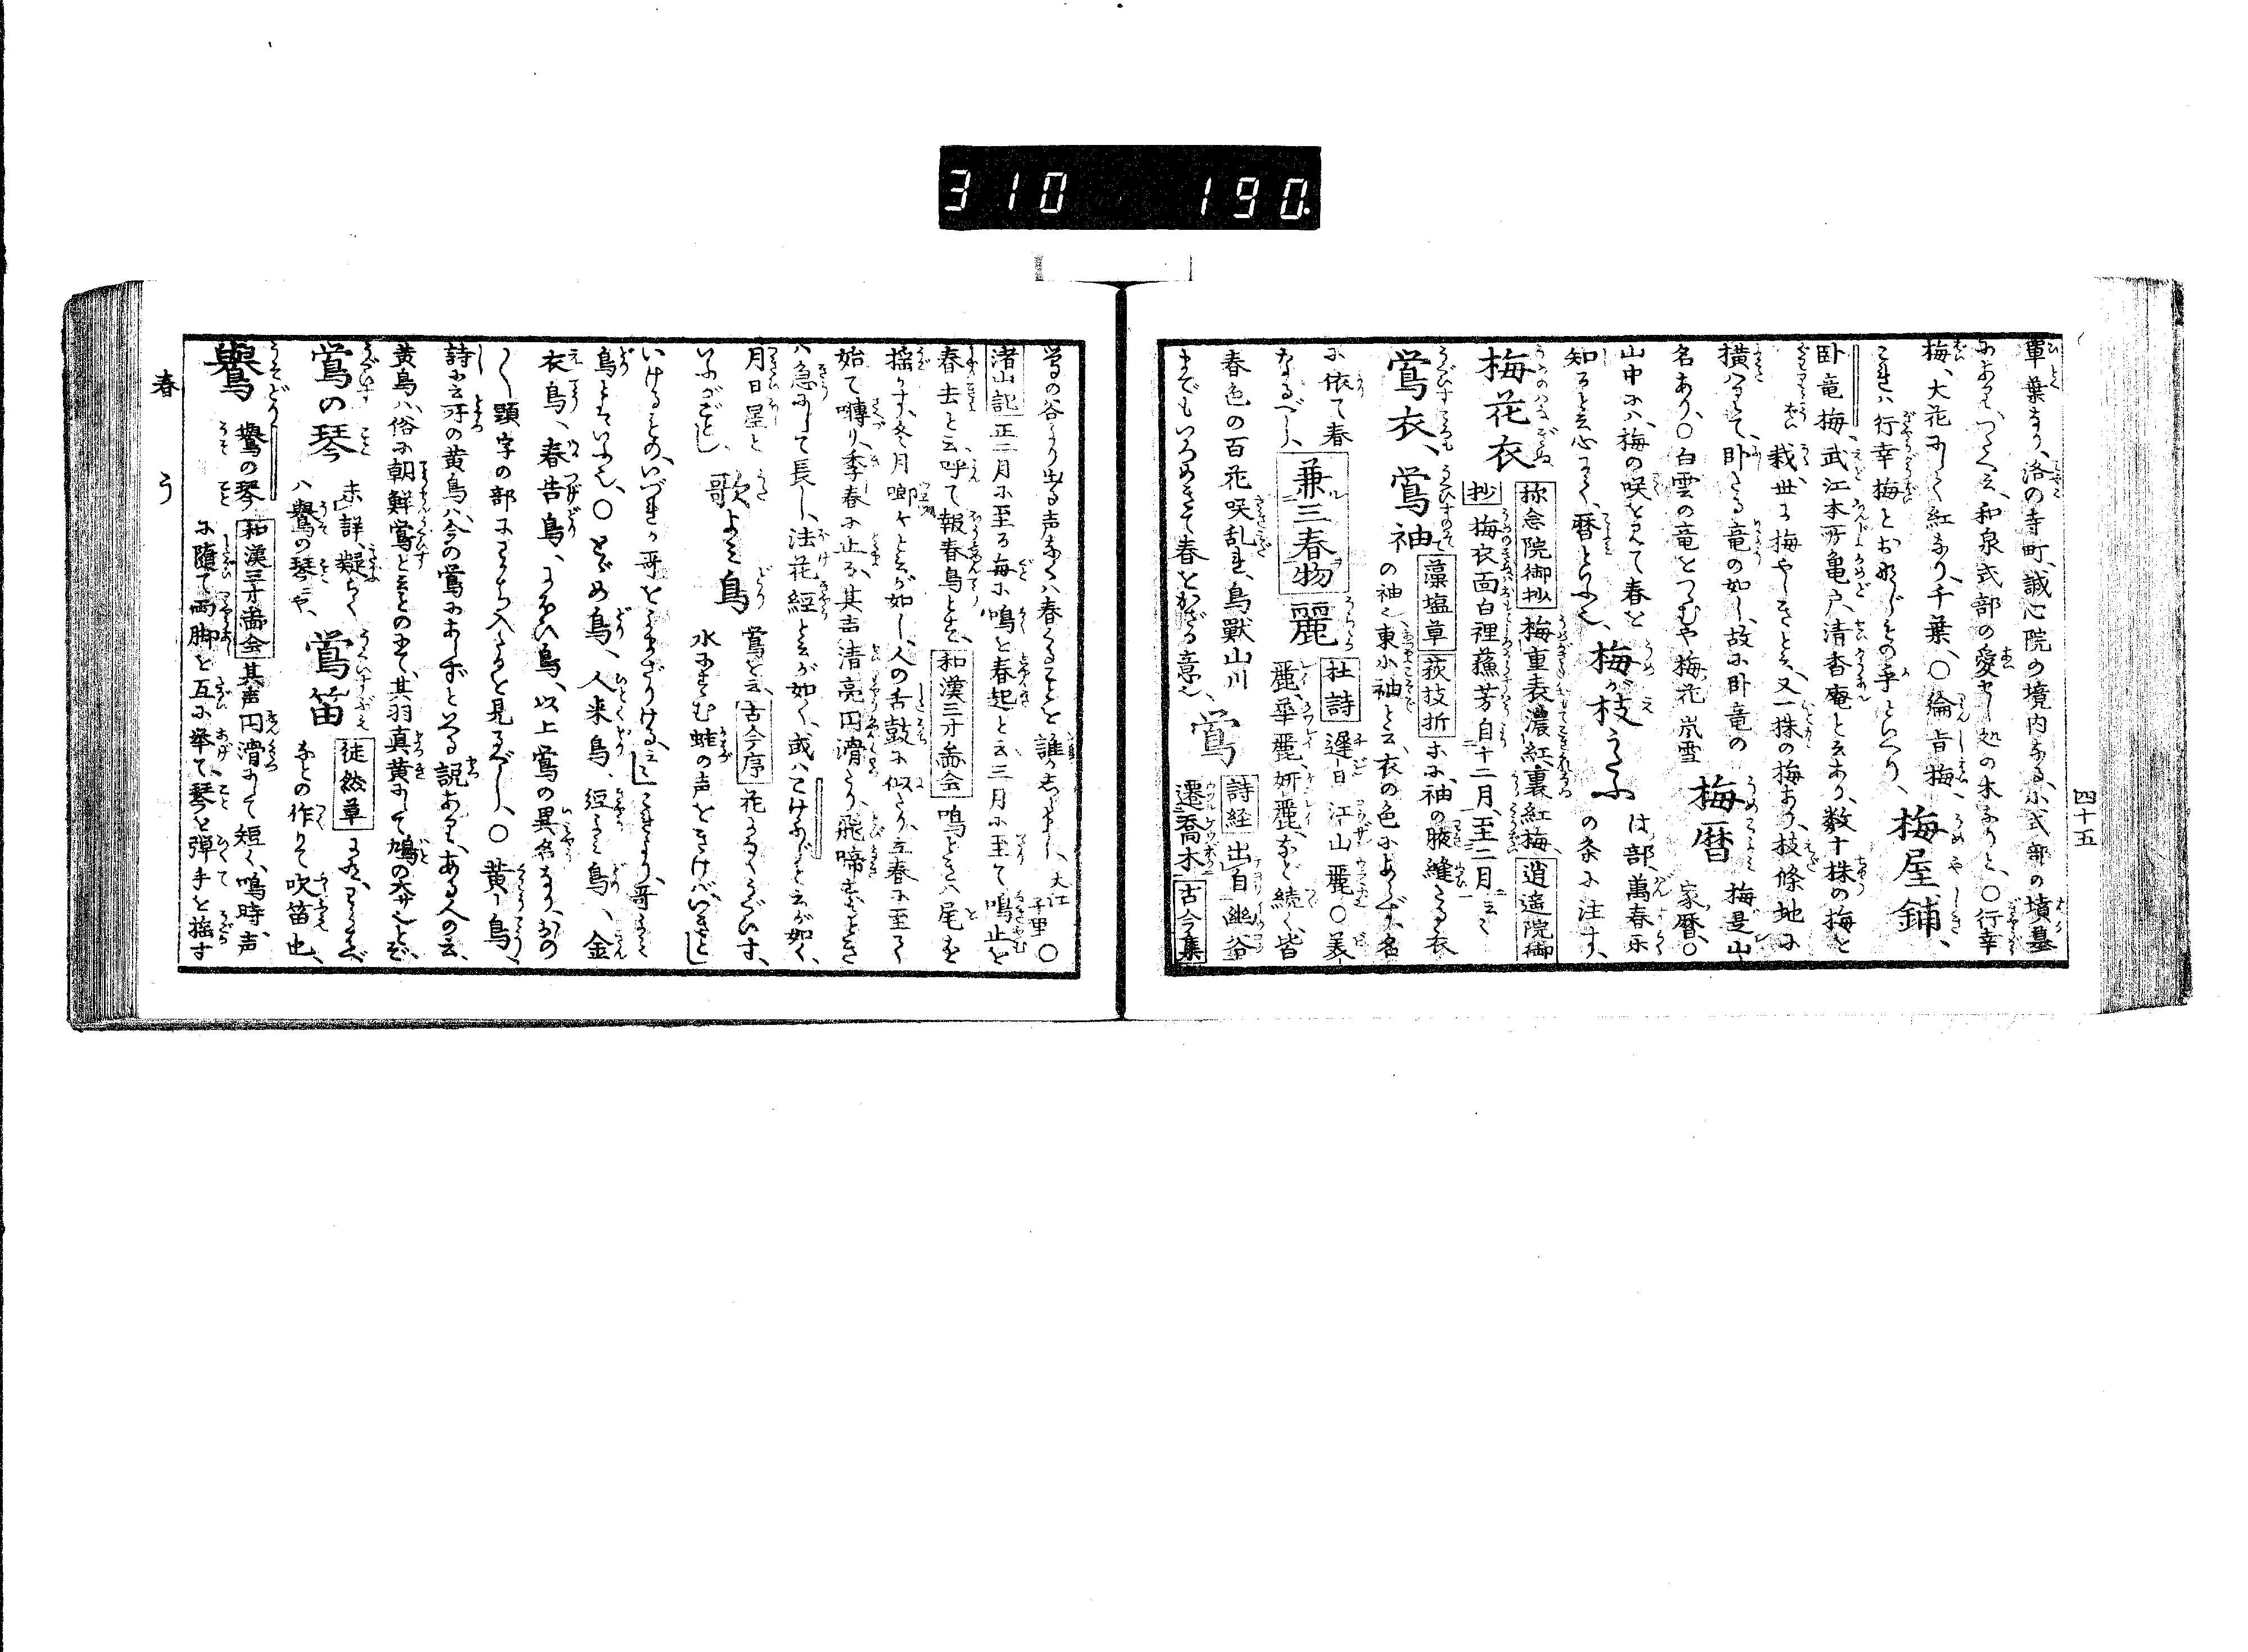 310 190.
四十五
単葉なり、洛の寺町、誠心院の境内なる、小式部の墳墓
にあり、つたへ云、和泉式部の愛せし処の木なりと、〇行幸
梅、大花にして紅なり、千葉、〇綸旨梅、梅屋鋪、
これハ行幸梅とおなじもの乎といへり、
臥竜梅、武江本所亀戸、清香庵と云あり、数十株の梅を
栽、世に梅やしきと云、又一株の梅あり、枝條地に
横ハりて、臥たる竜の如し、故に臥竜の
名あり、〇白雲の竜をつつむや梅花 嵐雪 梅暦 梅是山家暦、〇
山中にハ、梅の咲を見て春を
知ると云心にて、暦といふ也、梅が枝うたふ は部、萬春楽の条に注す、
梅花衣 称念院御抄 梅重表濃紅裏紅梅、逍遥院御
抄 梅衣面白裡蘓芳自十二月、至二月ニ云々
鴬衣、鴬袖 藻塩草 荻枝折 に、袖の腋縫たる衣
の袖也、東小袖と云、衣の色にあらず、名
に依て春
なるべし、兼三春物 麗 杜詩 遅日江山麗 〇美
麗、華麗、妍麗、など続く、皆
春色の百花咲乱れ、鳥獣山川
までもいろめきて春をかざる意也、鴬 詩経 出自幽谷
遷喬木 古今集
鴬の谷より出る声なくハ春くることを誰かしらまし、大江千里 〇
渚山記 正二月に至る毎に鳴を春起と云三月に至て鳴止を
春去と云呼て報春鳥と云、和漢三才圖会 鳴ときハ尾を
揺かす、冬月啣々と云が如し、人の舌鼓に似たり、立春に至て
始て囀り、季春に止る、其声清亮円滑たり、飛啼するとき
ハ急にして長し、法花経と云が如く、或ハつけふじと云が如く、
月日星と
いふがごとし、歌よみ鳥 鴬を云、古今序 花になくうぐひす、
水にすむ蛙の声をきけバいきとし
いけるもの、いづれか哥をよまざりける、云々これより、哥よみ
鳥とハいふ也、〇とゞめ鳥、人来鳥、経よみ鳥、金
衣鳥、春告鳥、にほひ鳥、以上鴬の異名なり、おの
〱頭字の部にわかち入たると見るべし、〇黄鳥、
詩に云所の黄鳥ハ、今の鴬にあらずとする説あり、ある人の云、
黄鳥ハ、俗に朝鮮鴬と云もの也、其羽真黄にして鳩の大サ也とぞ、
鴬の琴 未詳、疑らく
ハ鷽の琴ニや、鴬笛 徒然草 に見ゆ、
などの作りて吹笛也、
鷽 鷽の琴 和漢三才圖会 其声円滑にして短く、鳴時、声
に随て両脚を互に挙て琴を弾手を揺す
春 う